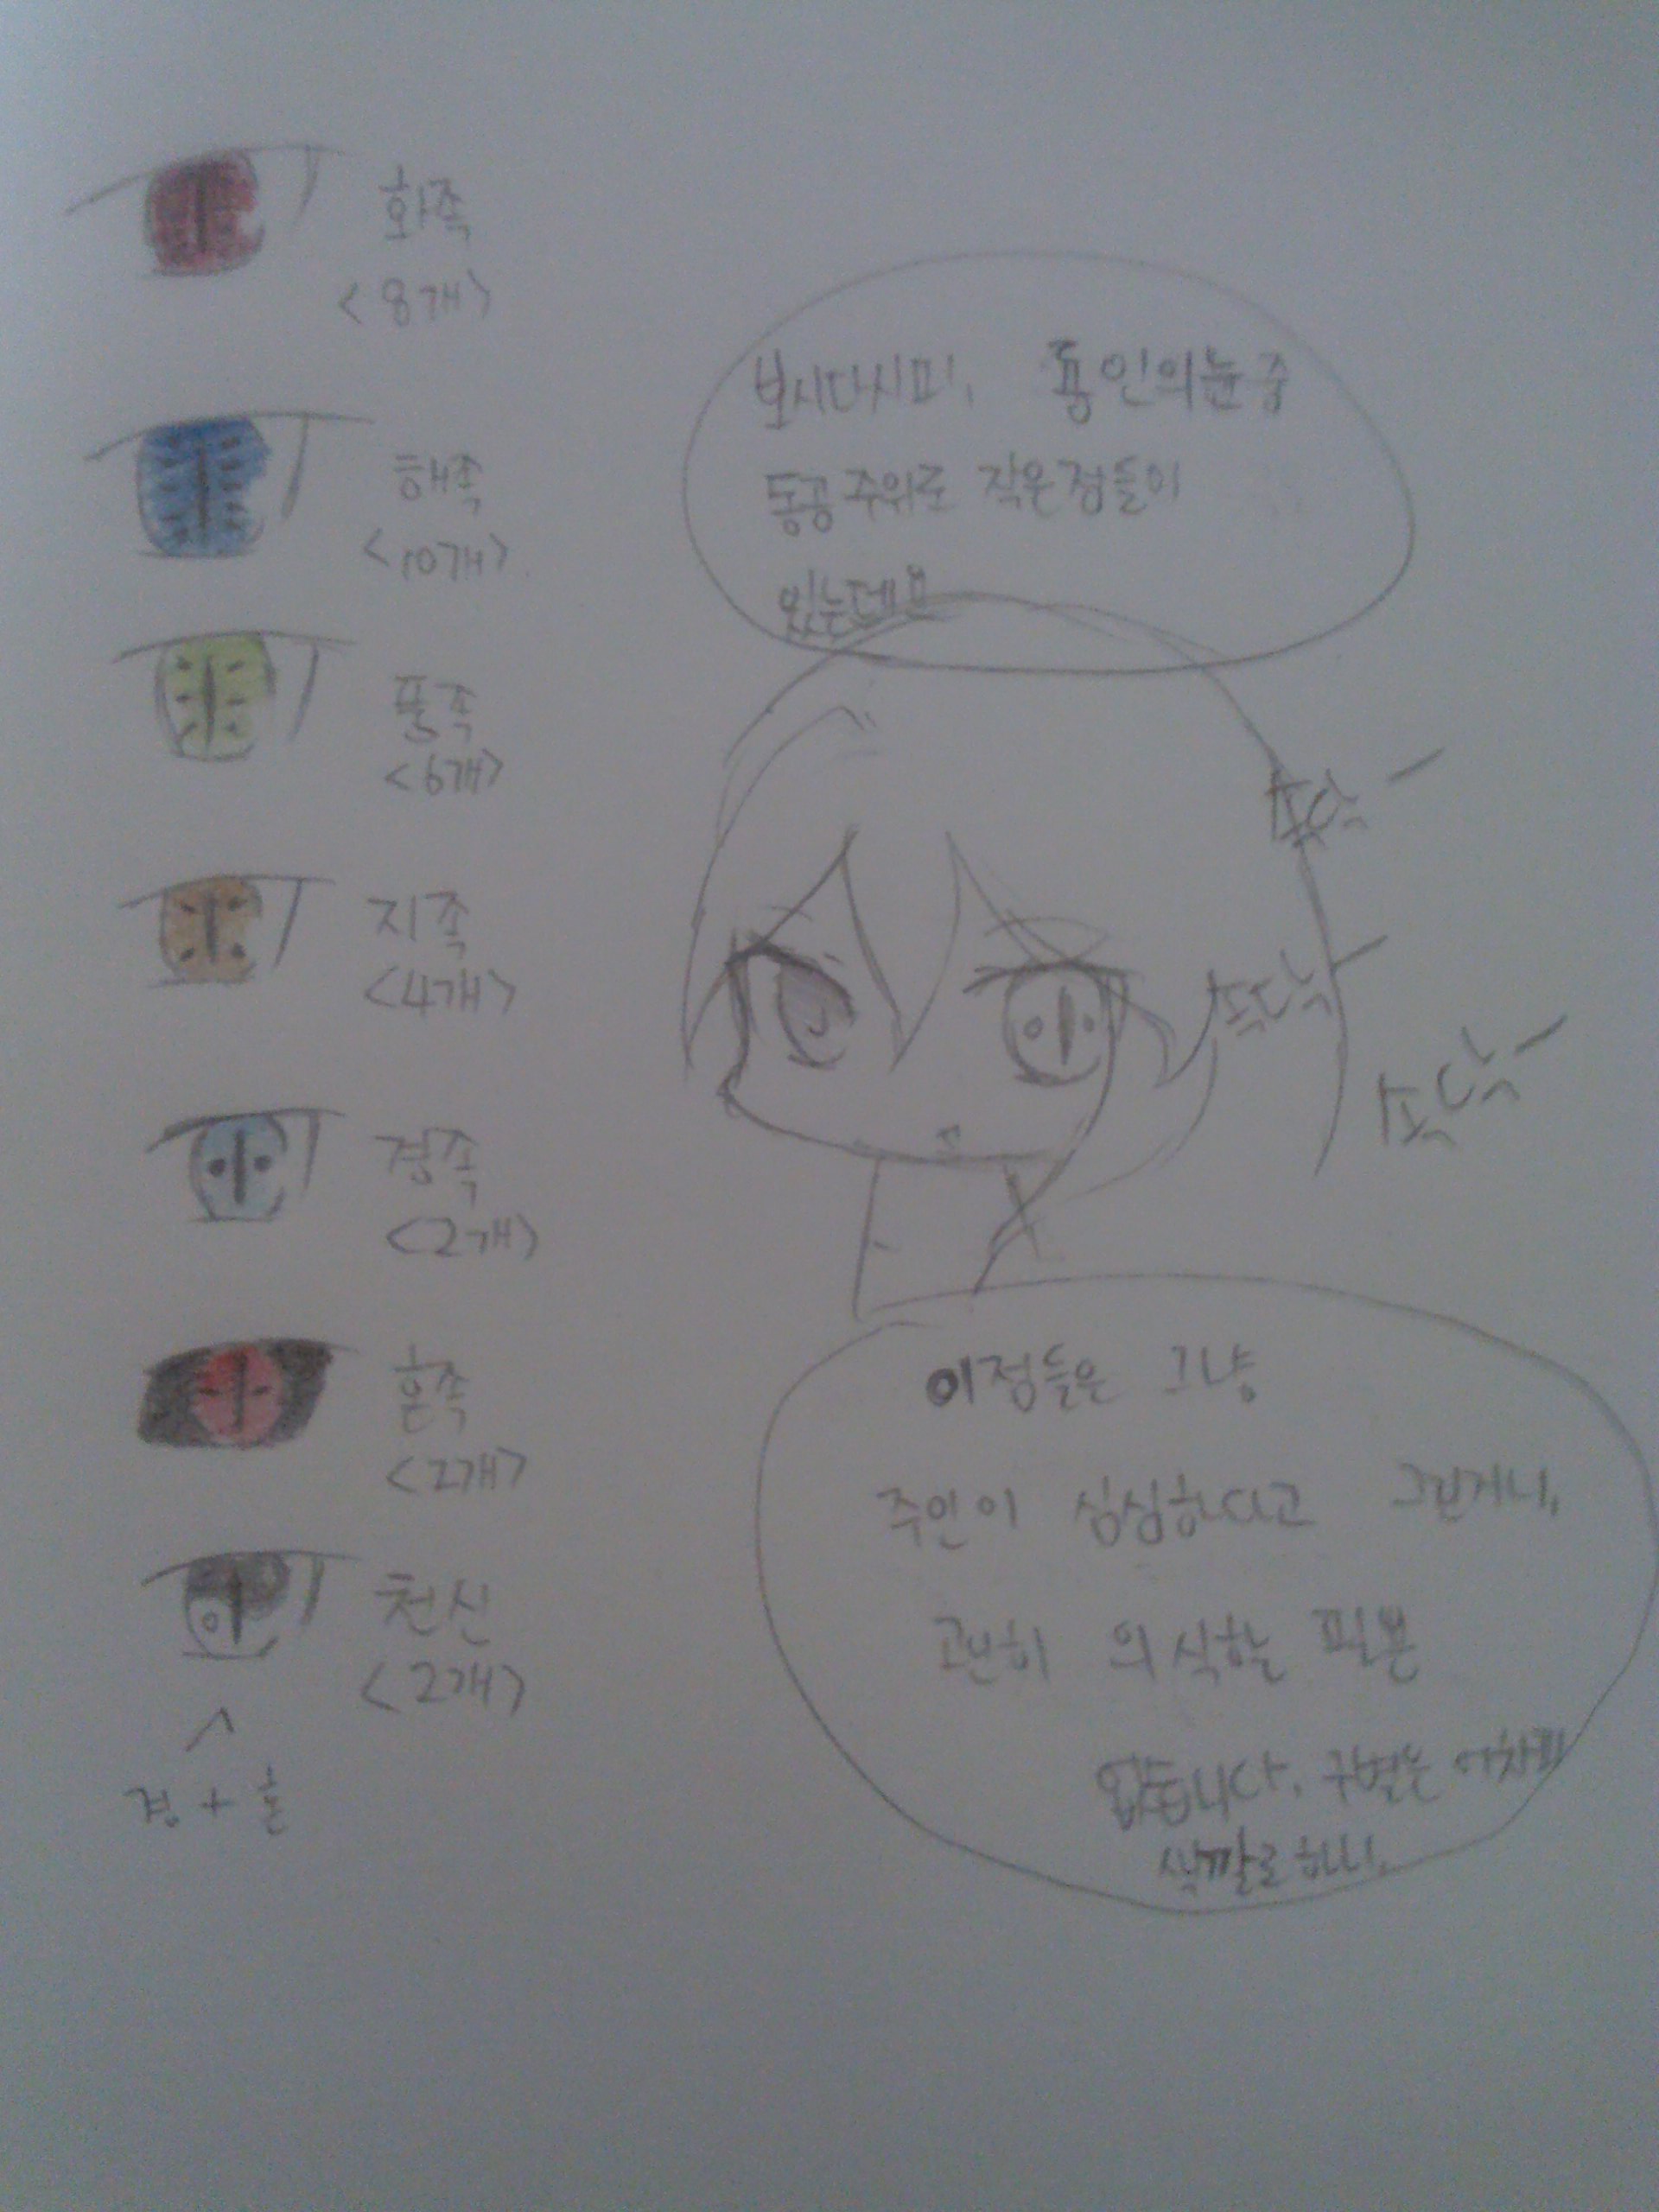 화족
<8개>
해족
<10개>
풍족
<6개>
지족
<4개>
경족
<2개>
혼족
<2개>
천신
<2개>
경 + 혼
보시다시피, 용인의눈중
동공 주위로 작은점들이
있는데요
소다닥-
소다닥-
소다닥-
이점들은 그냥
주인이 심심하다고 그린거니,
괜히 의식하는 필욘
없습니다. 구별은 어차피
색깔로하니.